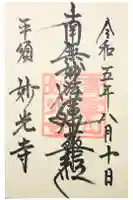 令和五年八月十日
南無妙法蓮華経
平須
妙光寺